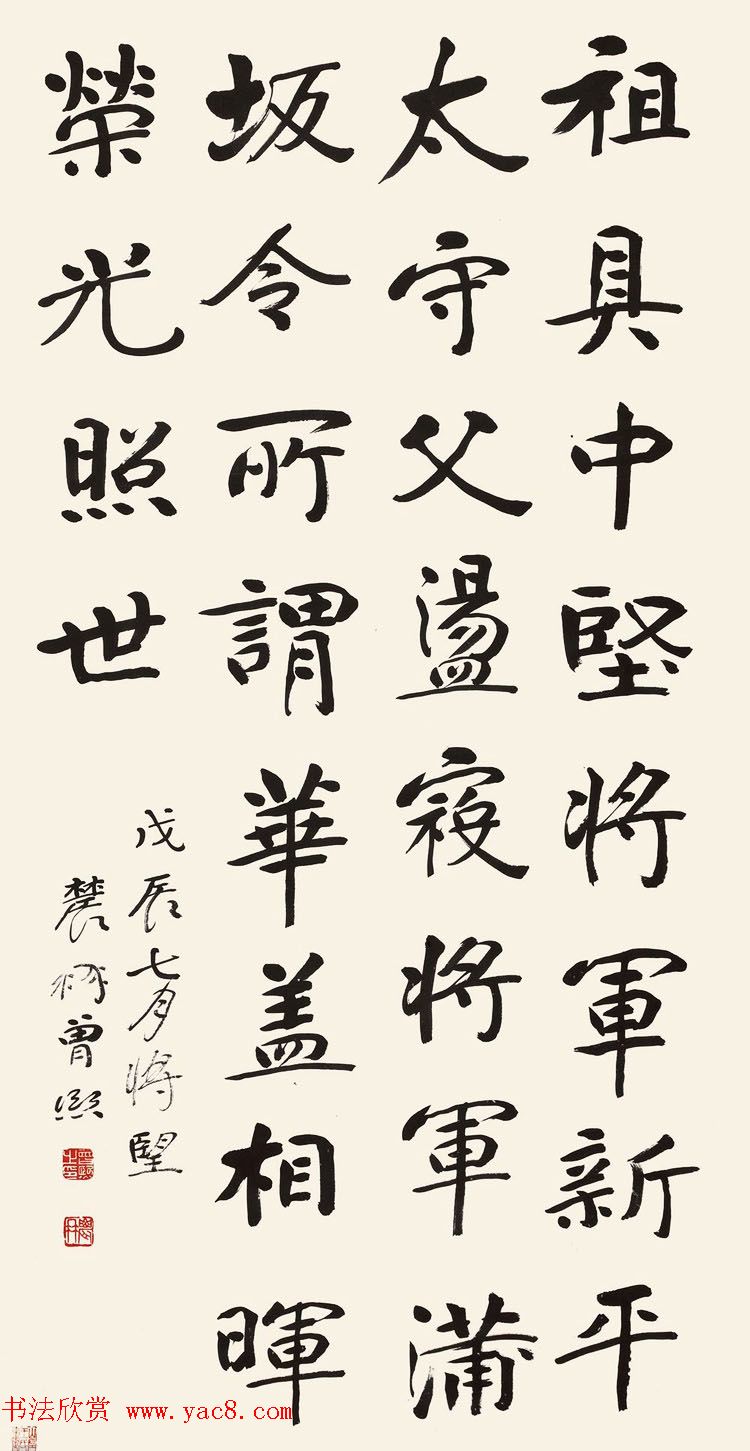 祖具中堅將軍新平
太守父盪寇將軍蒲
坂令所謂華盖相暉
榮光照世
戊辰七月將望
農髯曾熙
书法欣赏 www.yac8.com